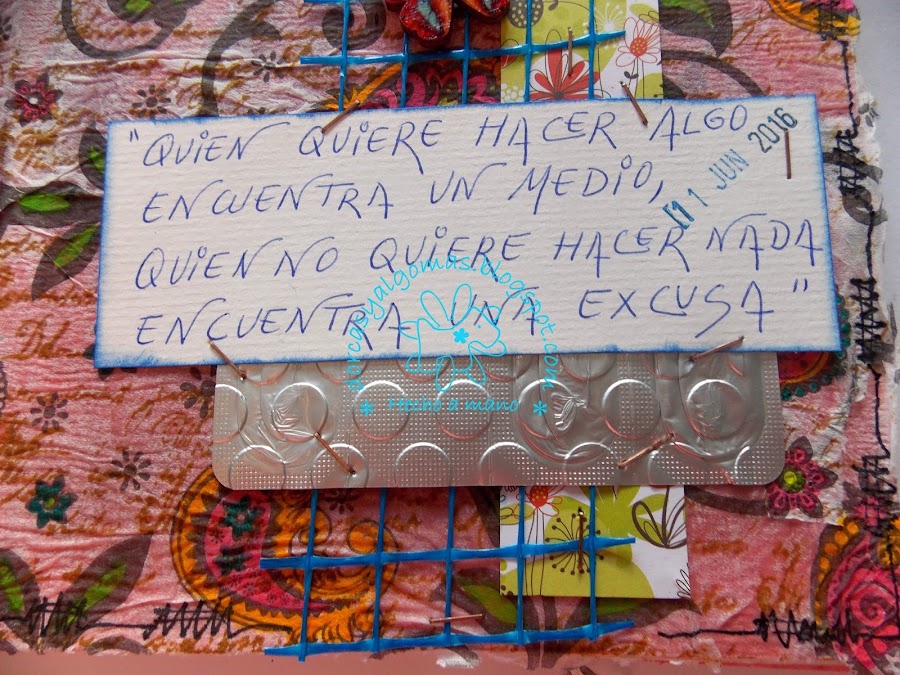 "QUIEN QUIERE HACER ALGO
ENCUENTRA UN MEDIO,
QUIEN NO QUIERE HACER NADA
ENCUENTRA UNA EXCUSA"
11 JUN 2016
Hecho a mano